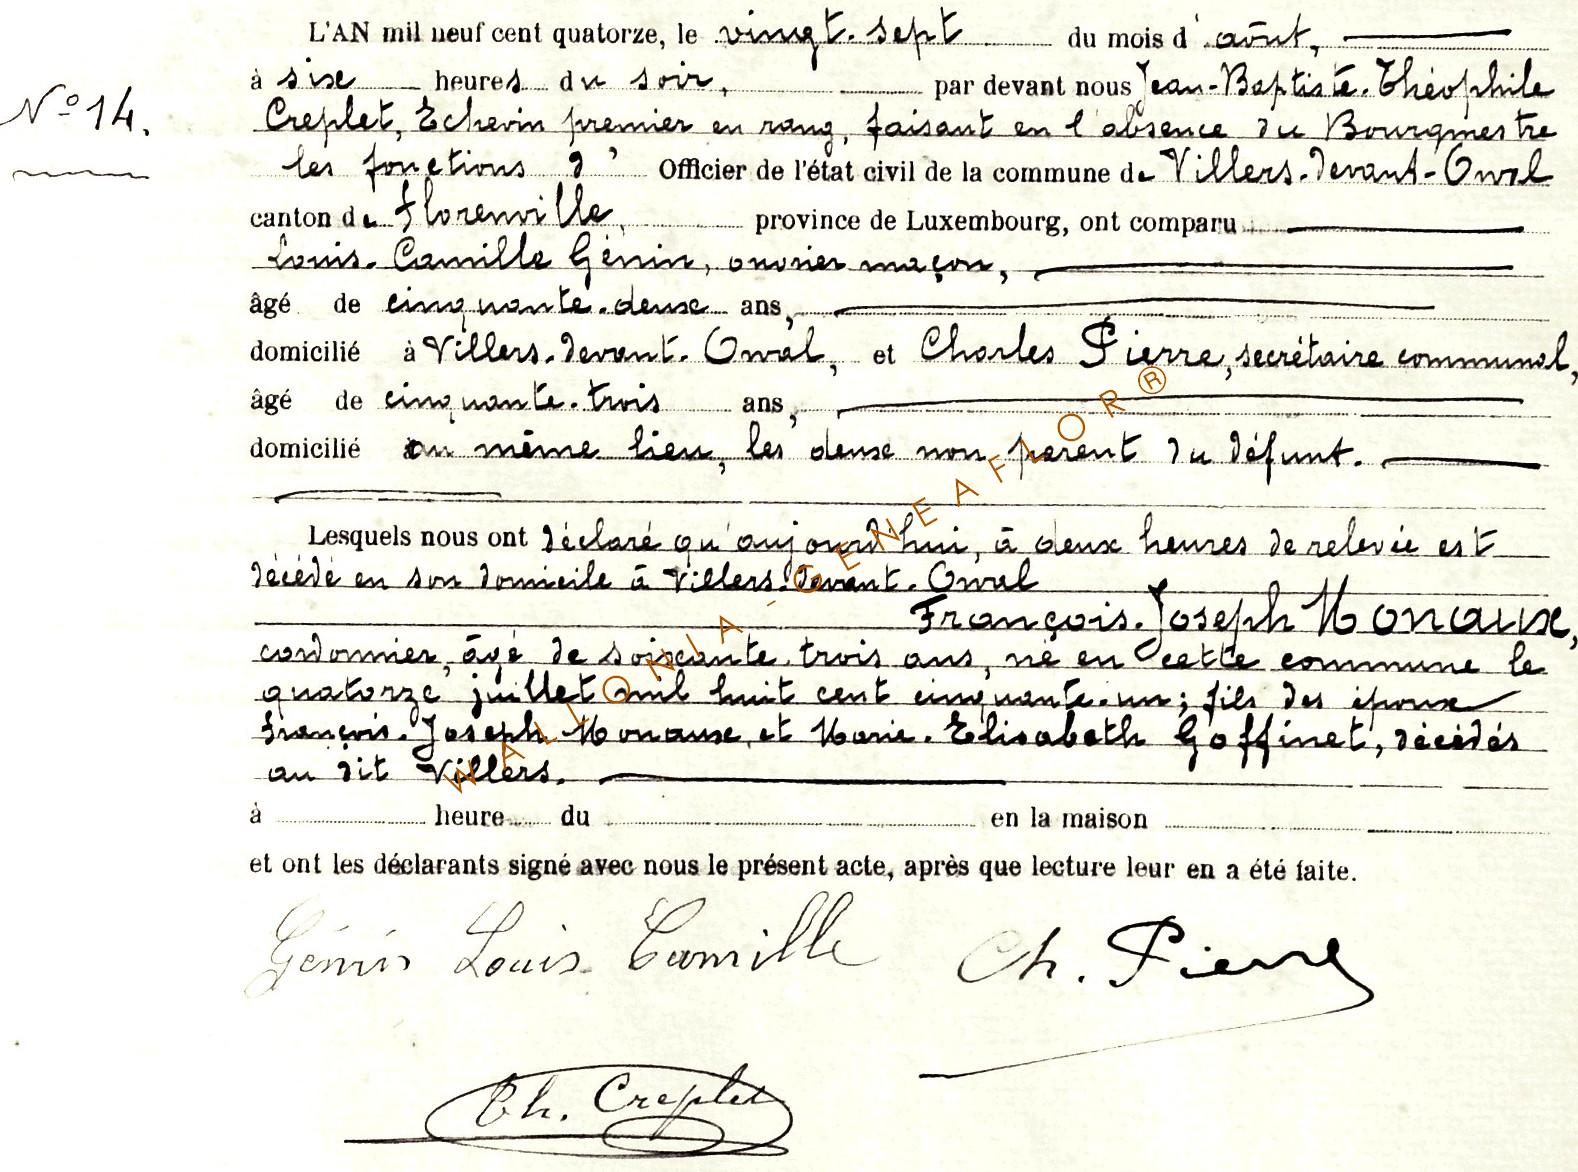 L'AN mil neuf cent quatorze, le vingt-sept du mois d'août,
à six heures du soir, par devant nous Jean-Baptiste-Théophile
N° 14.
Creplet, Echevin premier en rang, faisant en l'absence du Bourgmestre
les fonctions d' Officier de l'état civil de la commune de Villers-devant-Orval
canton de Florenville, province de Luxembourg, ont comparu
Louis-Camille Génin, ouvrier maçon,
âgé de cinquante-deux ans,
domicilié à Villers-devant-Orval, et Charles Pierre, secrétaire communal,
âgé de cinquante-trois ans,
domicilié au même lieu, les deux non parent du défunt.
Lesquels nous ont déclaré qu'aujourd'hui, à deux heures de relevée est
décédé en son domicile à Villers-devant-Orval
François-Joseph Monaux,
cordonnier, âgé de soixante-trois ans, né en cette commune le
quatorze juillet mil huit cent cinquante-un; fils des époux
François-Joseph Monaux et Marie-Elisabeth Goffinet, décédés
au dit Villers.
à heure du en la maison
et ont les déclarants signé avec nous le présent acte, après que lecture leur en a été faite.
Génin Louis Camille Ch. Pierre
Th. Creplet
WALLONIA-GENEAFLOR®